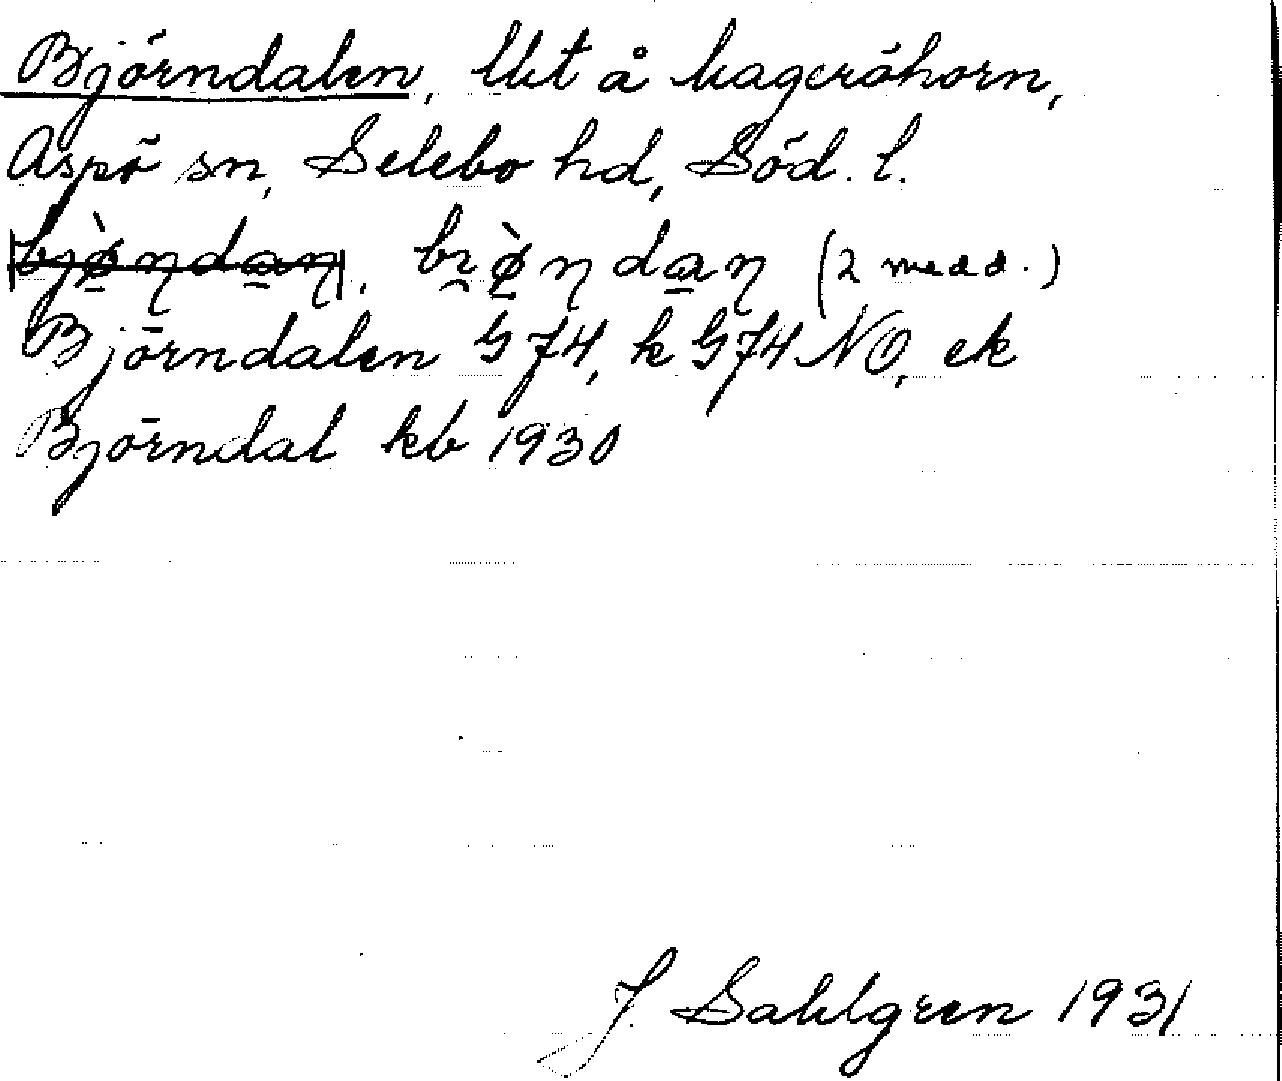 Björndalen, lht å Lageröhorn,
Aspö sn, Selebo hd, Söd. l.
bjø̀ndan, bi̯ø̀ndan (2 medd.)
Björndalen G 74, k G74 NO, ek
Björndal kb 1930
J. Sahlgren 1931